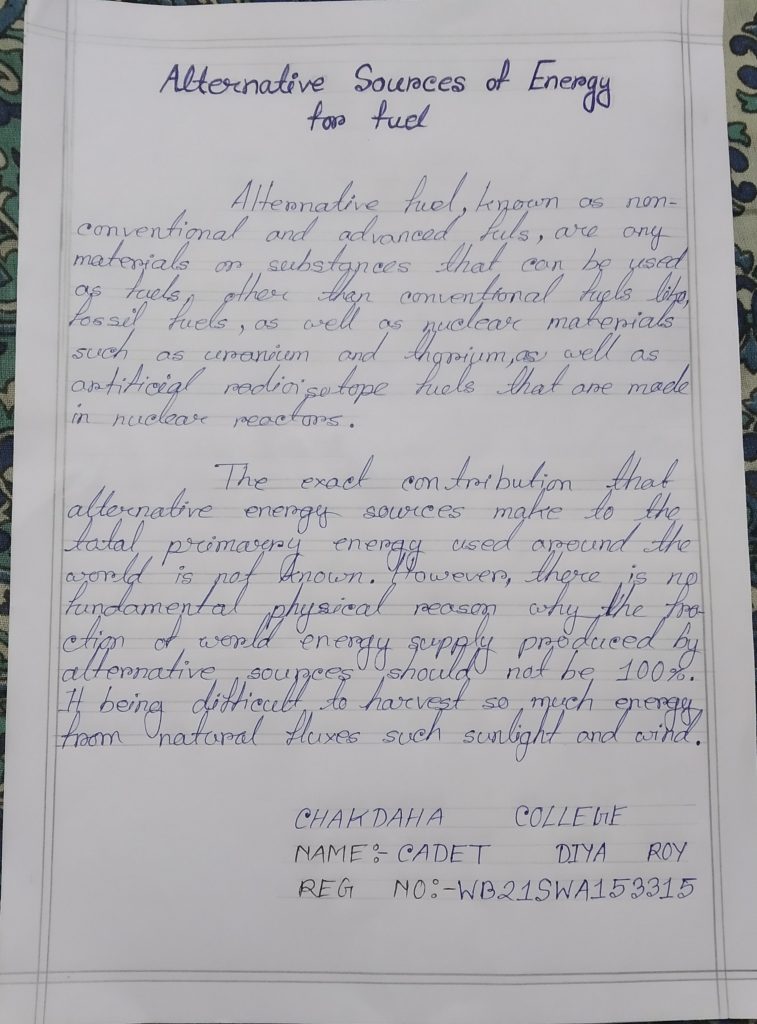 Alternative Sources of Energy
for fuel
Alternative fuel, known as non-
conventional and advanced fuls, are any
materials or substances that can be used
as fuels, other than conventional fuels like,
fossil fuels, as well as nuclear materials
such as uranium and thorium, as well as
artificial redioisotope fuels that are made
in nuclear reactors.
The exact contribution that
alternative energy sources make to the
tatal primarry energy used around the
world is not known. However, there is no
fundamental physical reason why the fra-
ction of world energy supply produced by
alternative sources should not be 100%.
It being difficult to harvest so much energy
from natural fluxes such sunlight and wind.
CHAKDAHA COLLEGE
NAME:- CADET DIYA ROY
REG NO:-WB21SWA153315